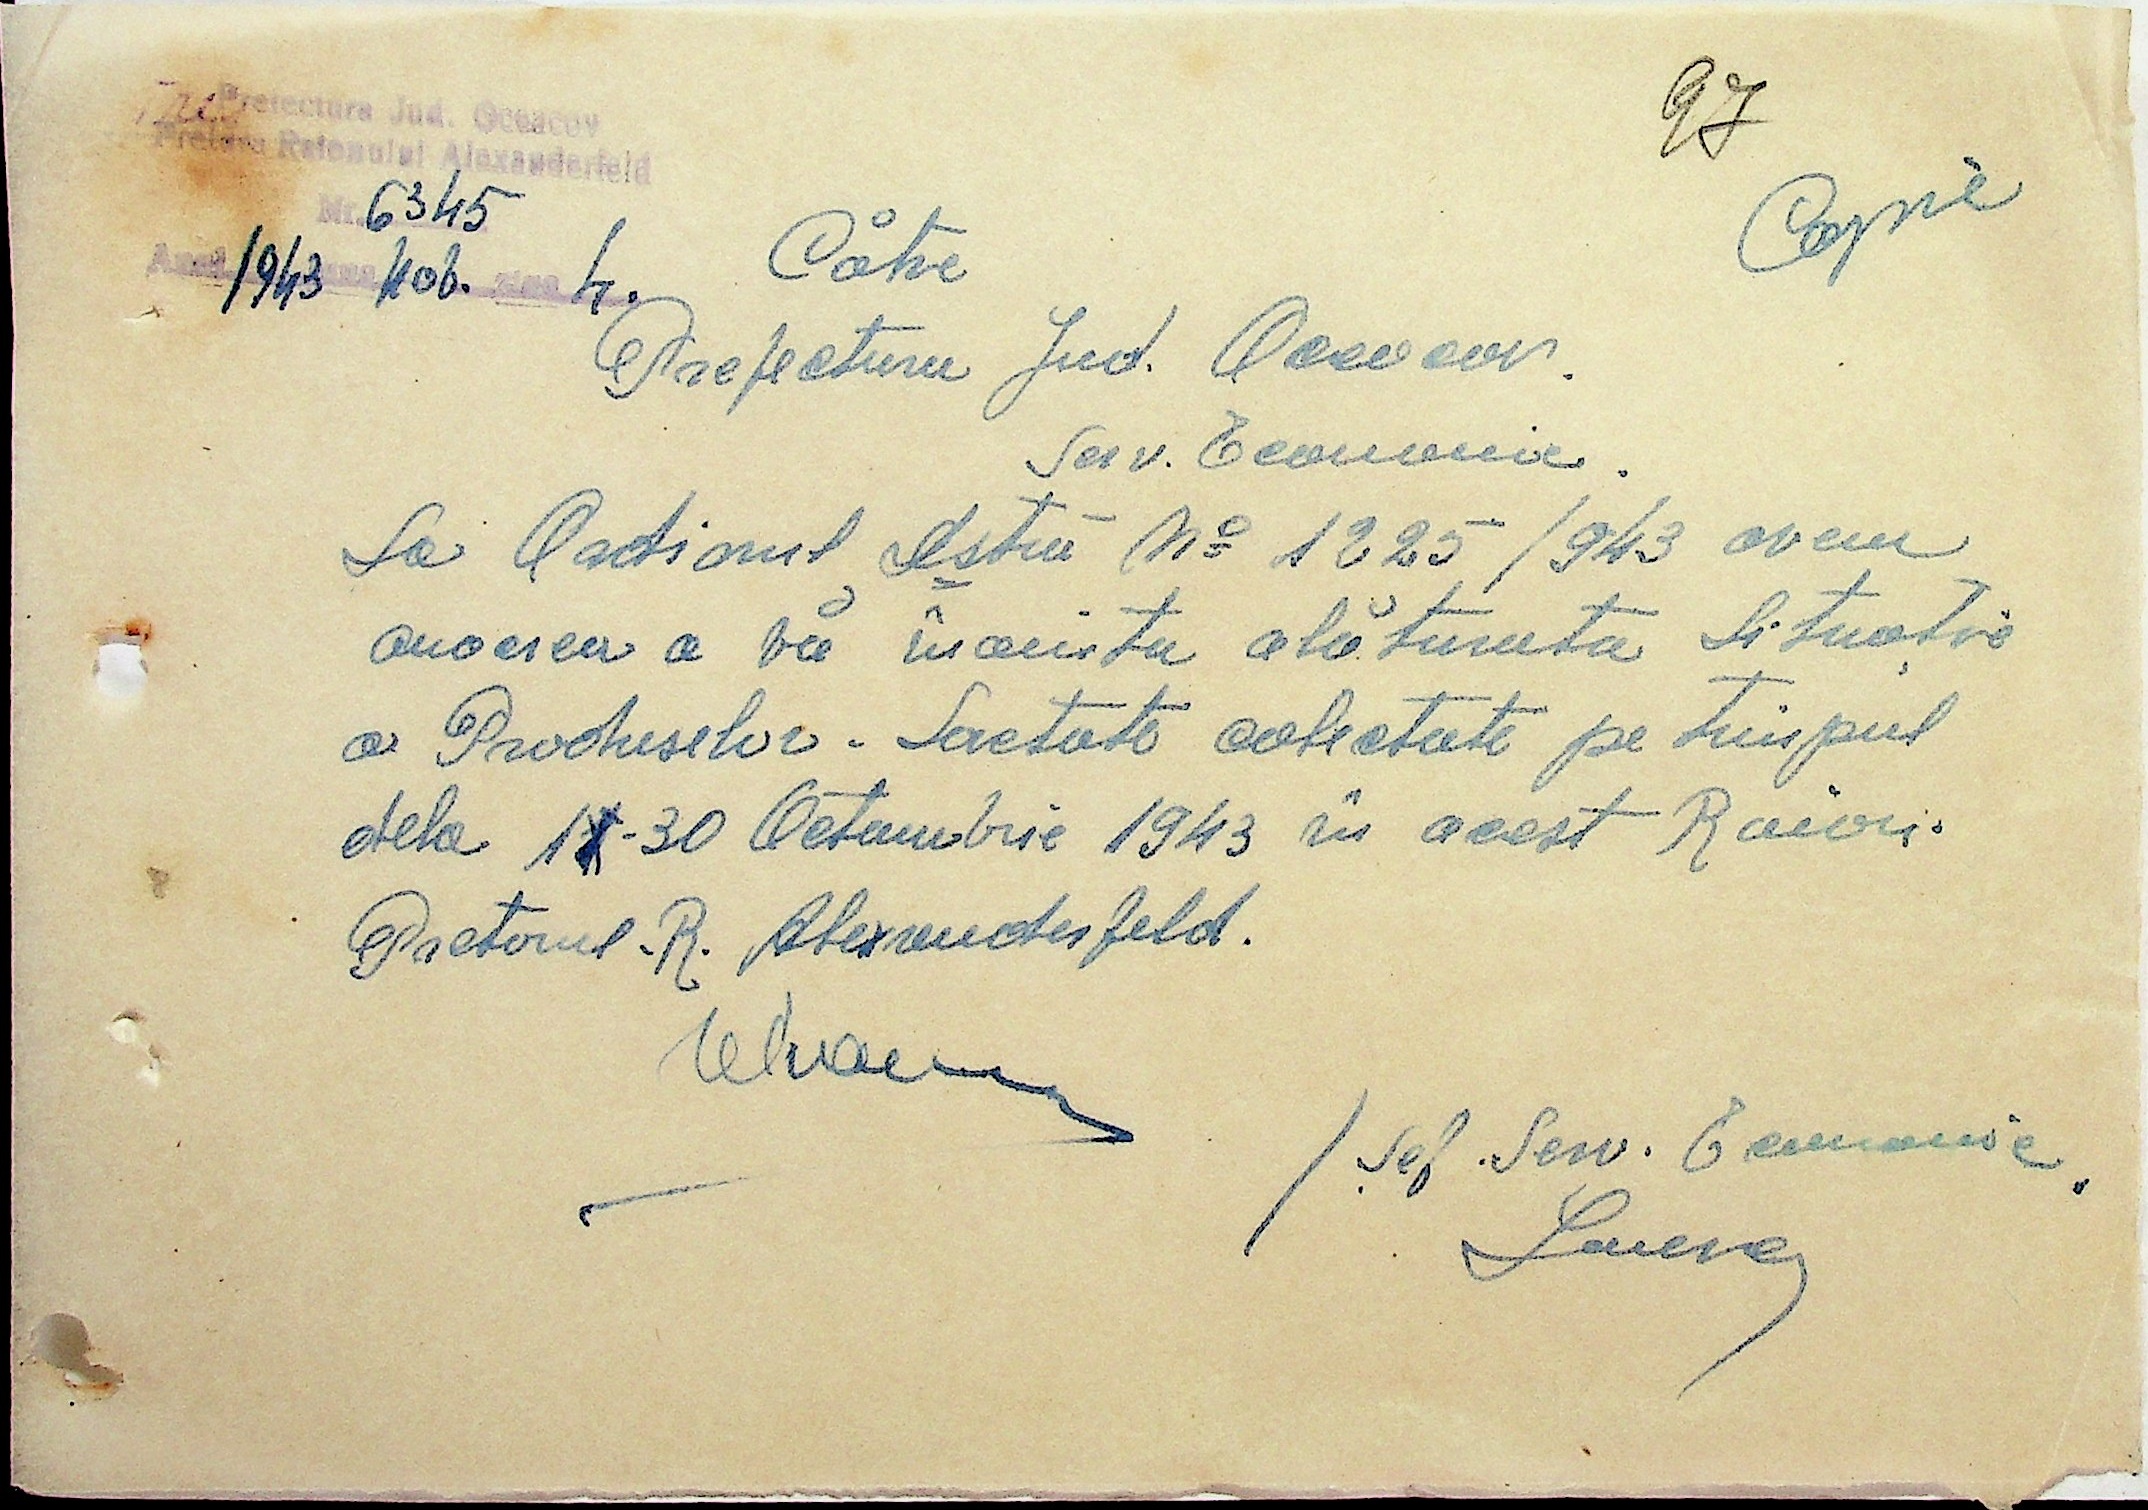 97
Copie
Prefectura Jud. Oceacov
Pretura Raionului Alexanderfeld
Nr. 6345
Anul 1943 luna Nob. ziua 4.
Către
Prefectura Jud. Oceacov.
Serv. Economic.
La Ordinul Dstră Nº 1225/943 avem
onoarea a vă înainta alăturata Situație
a Produselor. Lactate colectate pe timpul
dela 1-30 Octombrie 1943 în acest Raion.
Pretorul R. Alexanderfeld.
/ Șef. Serv. Economic.